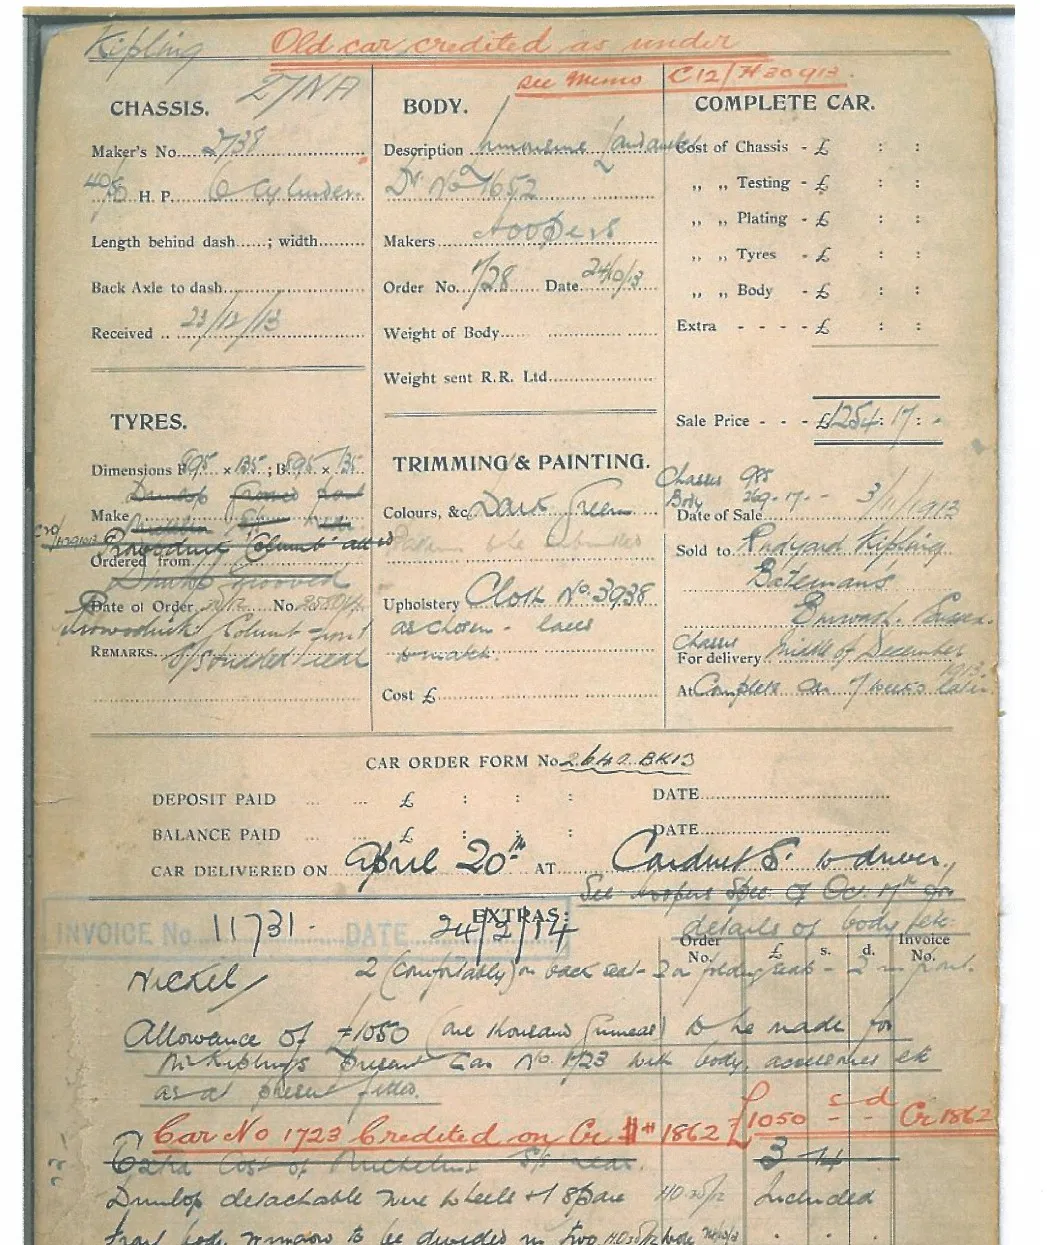 Kipling Old car credited as under
27NA see Memo C12/H30913.
CHASSIS.
Maker's No. 2738
40/50 H. P. 6 Cylinder
Length behind dash......; width.........
Back Axle to dash.........
Received .. 23/12/13
TYRES.
Dimensions F 895 × 135 ; B 895 × 135
Dunlop Grooved front
Make
Ordered from
Dunlop Grooved
Date of Order No.
front
REMARKS. S/Studded rear
BODY.
Description Limousine Landaulet
Dr. No 1652
Makers Hoopers
Order No. 728 Date 24/10/13
Weight of Body.....
Weight sent R.R. Ltd.....
TRIMMING & PAINTING.
Colours, &c. Dark Green
Pattern to be submitted
Upholstery Cloth No. 3938
as chosen - laces
to match.
Cost £
COMPLETE CAR.
Cost of Chassis - £ : :
„ „ Testing - £ : :
„ „ Plating - £ : :
„ „ Tyres - £ : :
„ „ Body - £ : :
Extra - - - - £ : :
Sale Price - - - £1254 : 17 : -
Chassis 985
Body 269 - 17 - -
Date of Sale 3/11/1913
Sold to Rudyard Kipling
Bateman's
Burwash. Sussex.
Chassis
For delivery Middle of December
1913.
At Complete car 7 weeks later.
CAR ORDER FORM No 2640 BK13
DEPOSIT PAID ... ... £ : : : DATE
BALANCE PAID ... ... £ : : : DATE
CAR DELIVERED ON April 20th AT Conduit S. to driver.
See Hoopers Spec. of Oct. 17th for
details of body etc
EXTRAS:
INVOICE No 11731. DATE 24/2/14
Order No. £ s. d. Invoice No.
2 (Comfortably) on back seat - 2 on folding seats - 2 in front.
Nickel
Allowance of £1050 (one thousand guineas) to be made for
Mr Kipling's present Car No. 1723 with body, accessories etc
as at present fitted.
Car No 1723 Credited on Cr # 1862 £1050 s - d - Cr 1862
Extra Cost of Michelin S/S rear. 3 14
Dunlop detachable wire wheels + 1 spare Included
Front body window to be divided in two